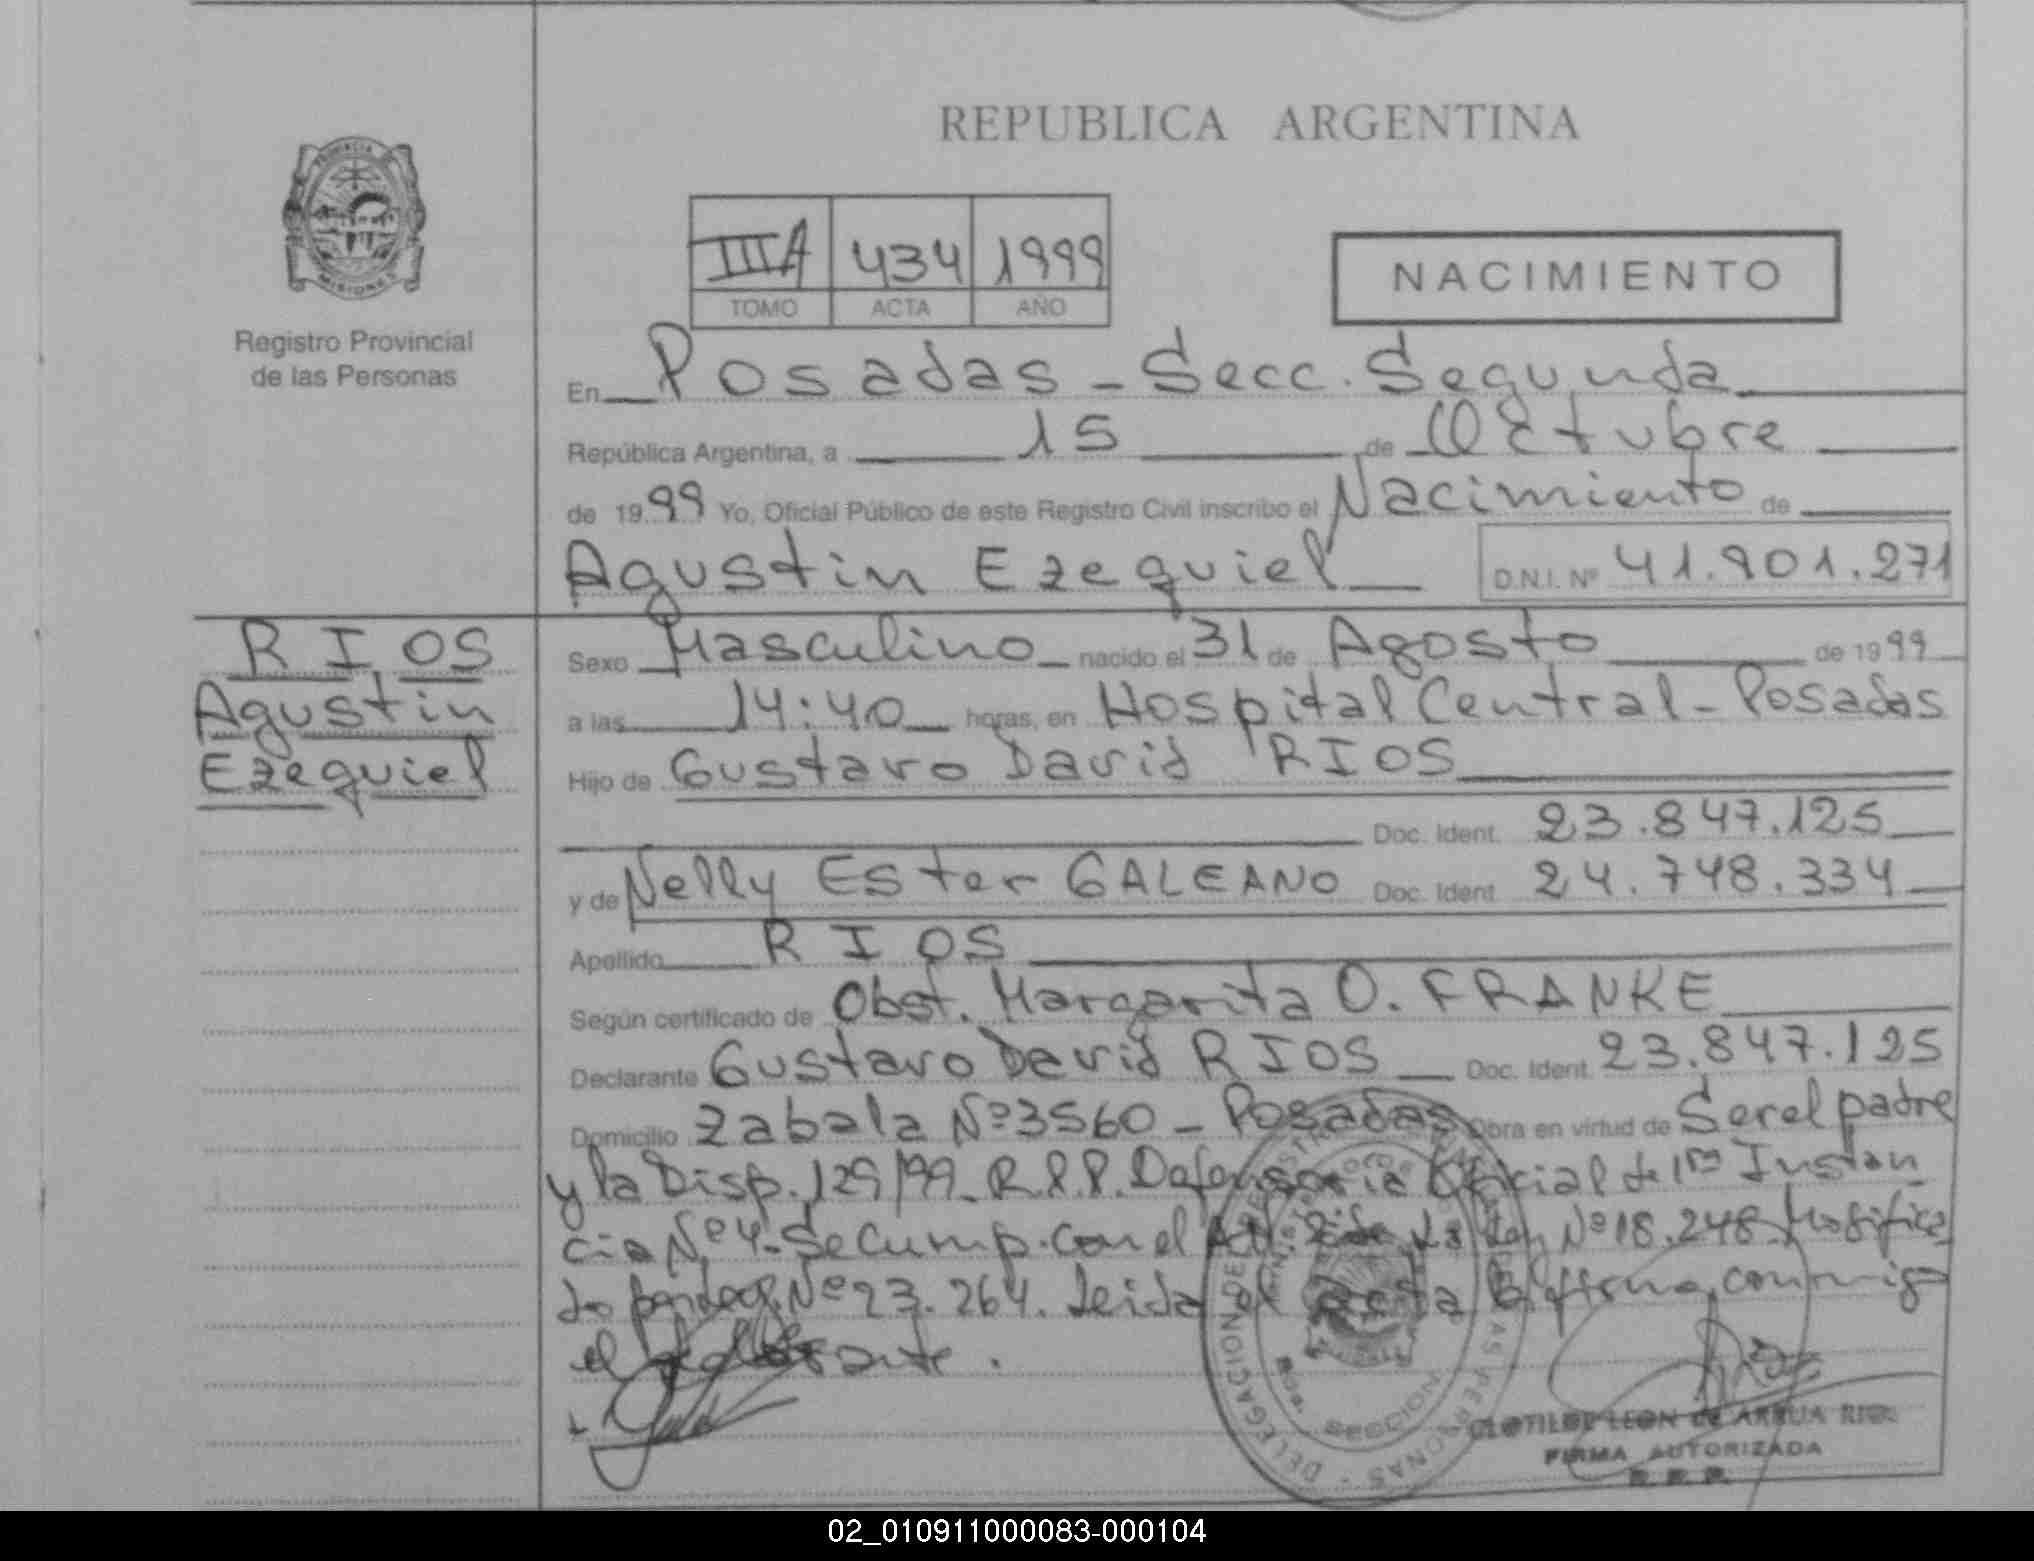 REPUBLICA ARGENTINA
PROVINCIA DE
MISIONES
Registro Provincial
de las Personas
IIIA 434 1999
TOMO ACTA AÑO
NACIMIENTO
En Posadas - Secc. Segunda
República Argentina, a 15 de Octubre
de 1999 Yo, Oficial Público de este Registro Civil inscribo el Nacimiento de
Agustin Ezequiel D.N.I. Nº 41.901.271
RIOS
Agustin
Ezequiel
Sexo Masculino nacido el 31 de Agosto de 1999
a las 14:40 horas, en Hospital Central - Posadas
Hijo de Gustavo David RIOS
Doc. Ident. 23.847.125
y de Nelly Ester GALEANO Doc. Ident. 24.748.334
Apellido RIOS
Según certificado de Obst. Margarita O. FRANKE
Declarante Gustavo David RIOS Doc. Ident. 23.847.125
Domicilio Zabala Nº 3560 - Posadas Obra en virtud de Ser el padre
y la Disp. 129/99. R.P.P. Defensoria Oficial de 1ra Instan
cia Nº 4. Se Cump. con el Ley Nº 18.248 Modifica
do por Ley Nº 23.264. Leida el acta la firma conmigo
el declarante.
DELEGACION DE LAS PERSONAS
SECCION
CLOTILDE LEON de ARRUA RIOS
FIRMA AUTORIZADA
R. P. P.
02_010911000083-000104